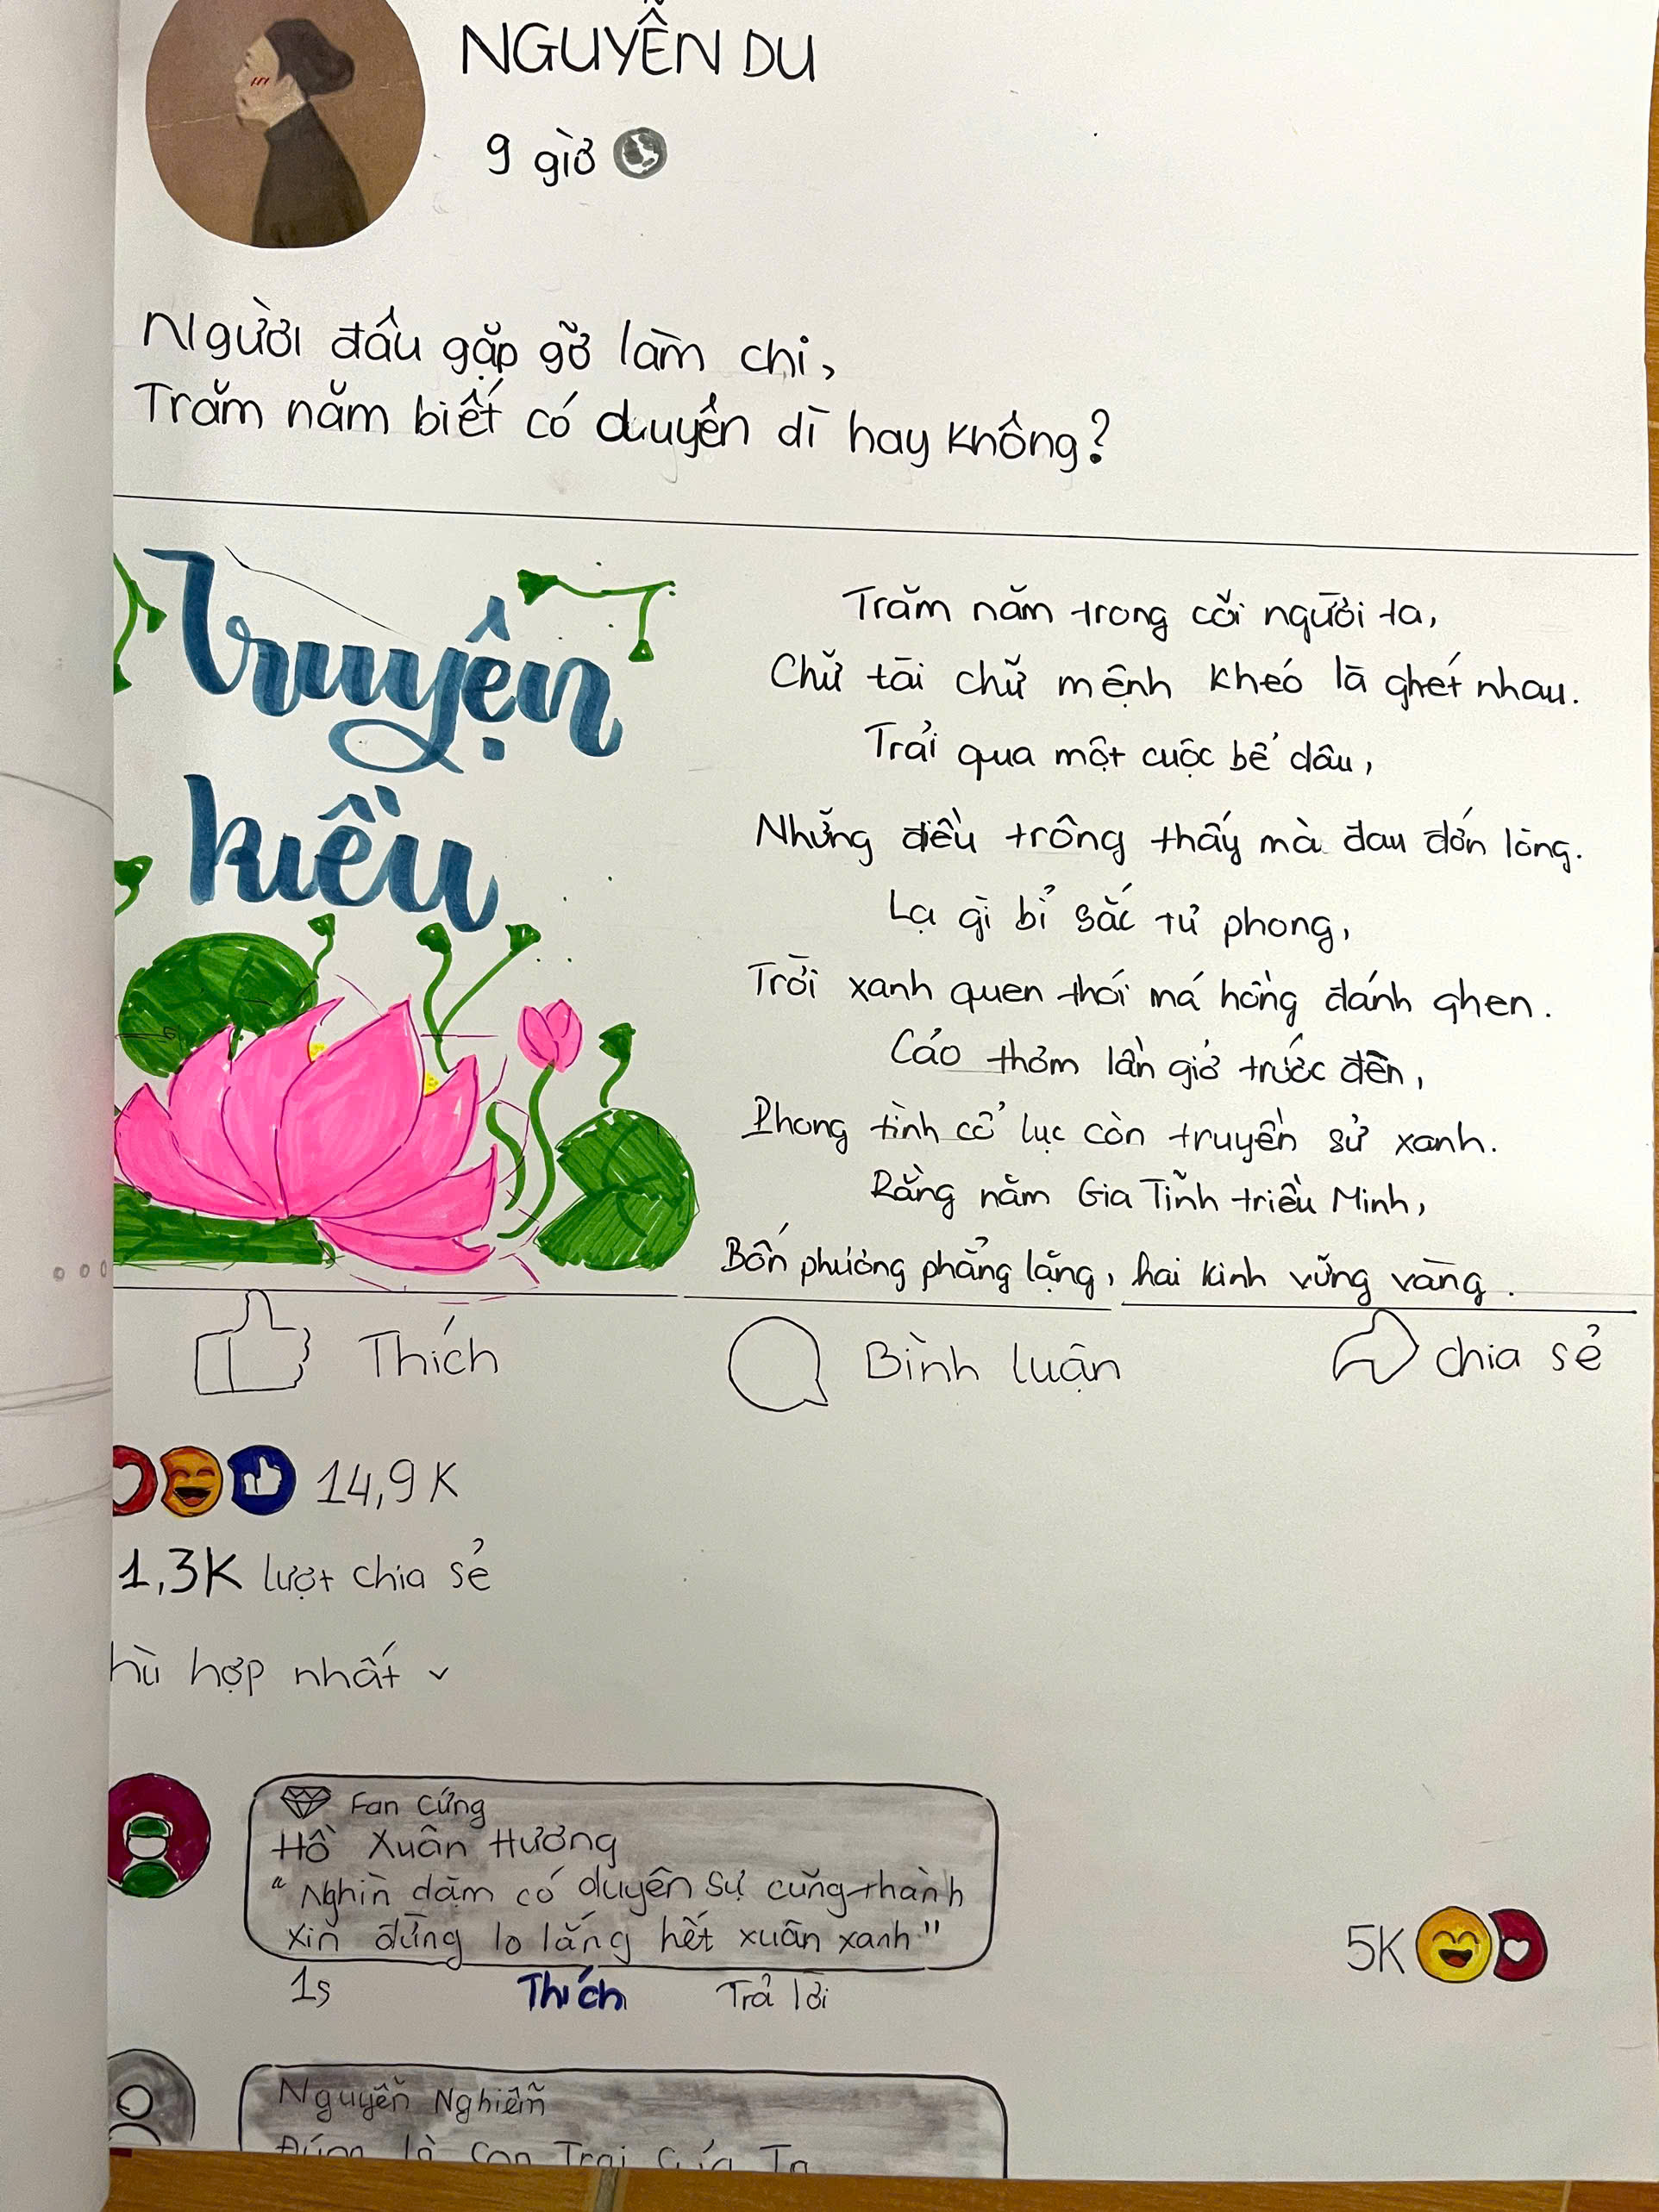 NGUYỄN DU
9 giờ
Người đâu gặp gỡ làm chi,
Trăm năm biết có duyên dì hay không?
Truyện
Kiều
Trăm năm trong cõi người ta,
Chữ tài chữ mệnh khéo là ghét nhau.
Trải qua một cuộc bể dâu,
Những điều trông thấy mà đau đớn lòng.
Lạ gì bỉ sắc tư phong,
Trời xanh quen thói má hồng đánh ghen.
Cảo thơm lần giở trước đèn,
Phong tình cổ lục còn truyền sử xanh.
Rằng năm Gia Tĩnh triều Minh,
Bốn phương phẳng lặng, hai kinh vững vàng.
Thích
Bình luận
chia sẻ
14,9K
1,3K lượt chia sẻ
hù hợp nhất
Fan cứng
Hồ Xuân Hương
"Nghìn dặm có duyên sự cũng thành
xin đừng lo lắng hết xuân xanh"
5K
1s Thích Trả lời
Nguyễn Nghiễm
Đúng là Con Trai Của Ta